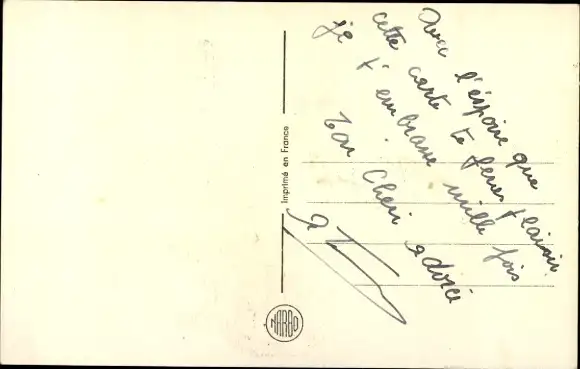 Avec l'éspoire que
cette carte te feras plaisir
je t'embrasse mille fois
Ton Cheri adoré
Imprimé en France
NARBO